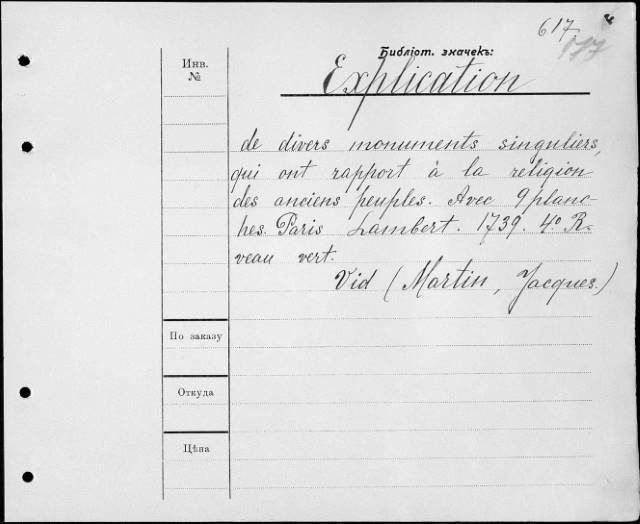 617
177
Библіот. значекъ:
Инв.
№
Explication
de divers monuments singuliers,
qui ont rapport à la religion
des anciens peuples. Avec 9 planc-
hes. Paris Lambert. 1739. 4º R.
veau vert.
Vid (Martin, Jacques.)
По заказу
Откуда
Цѣна